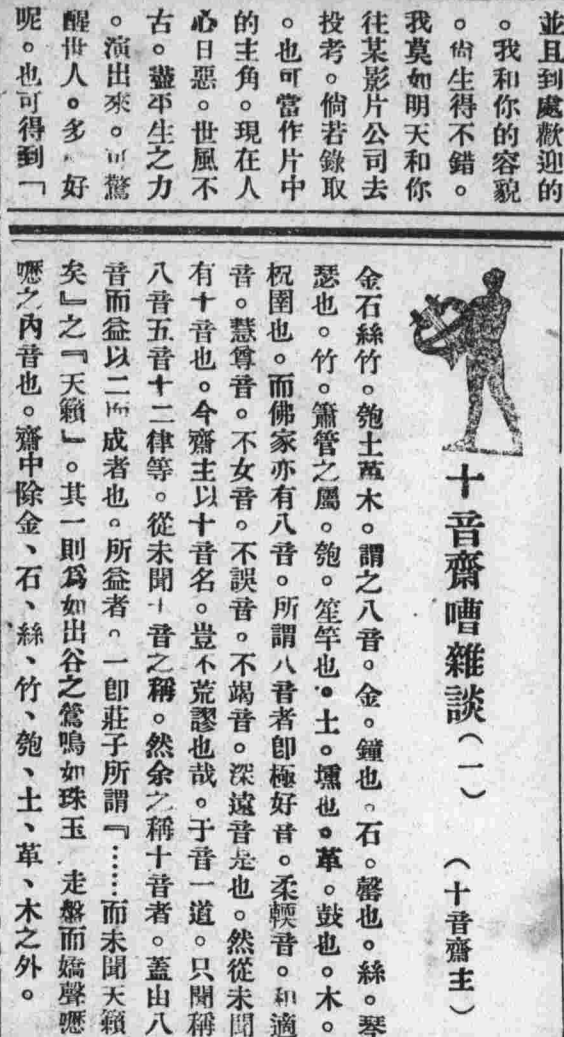 並且到處歡迎的
。我和你的容貌
。尙生得不錯。
我莫如明天和你
往某影片公司去
投考。倘若錄取
。也可當作片中
的主角。現在人
心日惡。世風不
古。盡平生之力
。演出來。可驚
醒世人。多 好
呢。也可得到「
十音齋嘈雜談(一) (十音齋主)
金石絲竹。匏土革木。謂之八音。金。鐘也。石。罄也。絲。琴
瑟也。竹。簫管之屬。匏。笙竽也。土。壎也。革。鼓也。木。
柷圉也。而佛家亦有八音。所謂八音者卽極好音。柔輭音。和適
音。慧尊音。不女音。不誤音。不竭音。深遠音是也。然從未聞
有十音也。今齋主以十音名。豈不荒謬也哉。于音一道。只聞稱
八音五音十二律等。從未聞十音之稱。然余之稱十音者。蓋由八
音而益以二而成者也。所益者。一卽莊子所謂『……而未聞天籟
矣』之『天籟』。其一則爲如出谷之鶯鳴如珠玉 走盤而嬌聲嚦
嚦之內音也。齋中除金、石、絲、竹、匏、土、革、木之外。